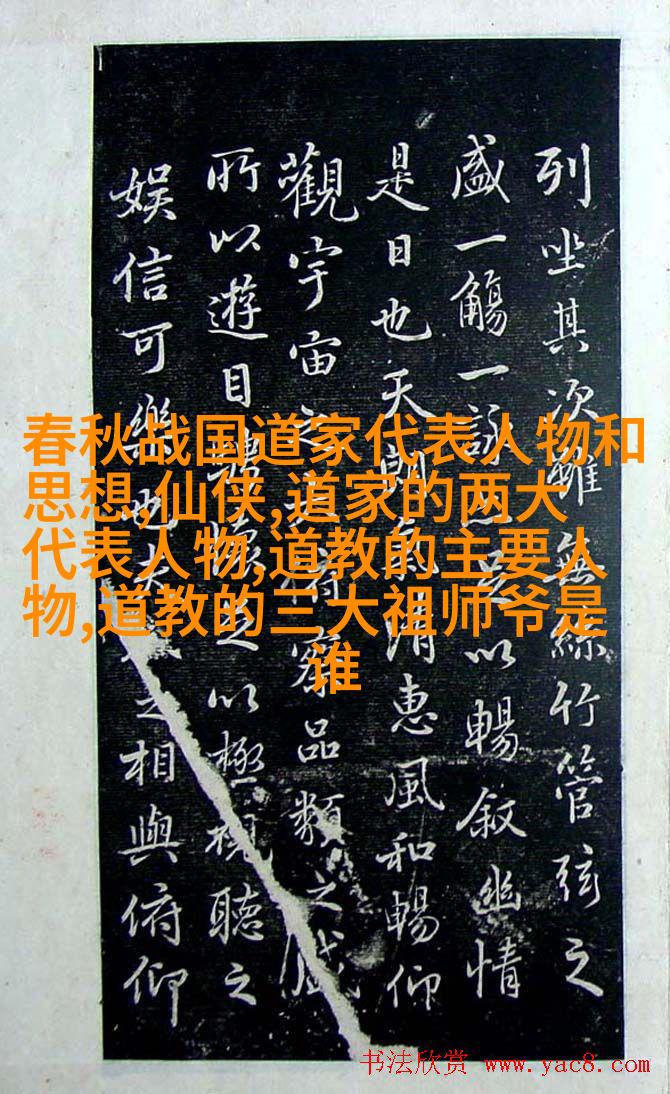 春秋战国道家代表人物和
思想,仙侠,道家的两大
代表人物,道教的主要人
物,道教的三大祖师爷是
谁
列坐其次雖無絲竹管弦之
盛一觴一詠亦足以暢叙幽情
是日也天朗氣清惠風和暢仰
觀宇宙之大俯察品類之盛
所以遊目騁懷足以極視聽之
娱信可樂也夫之相與俯仰
书法欣赏 www.yac8.com